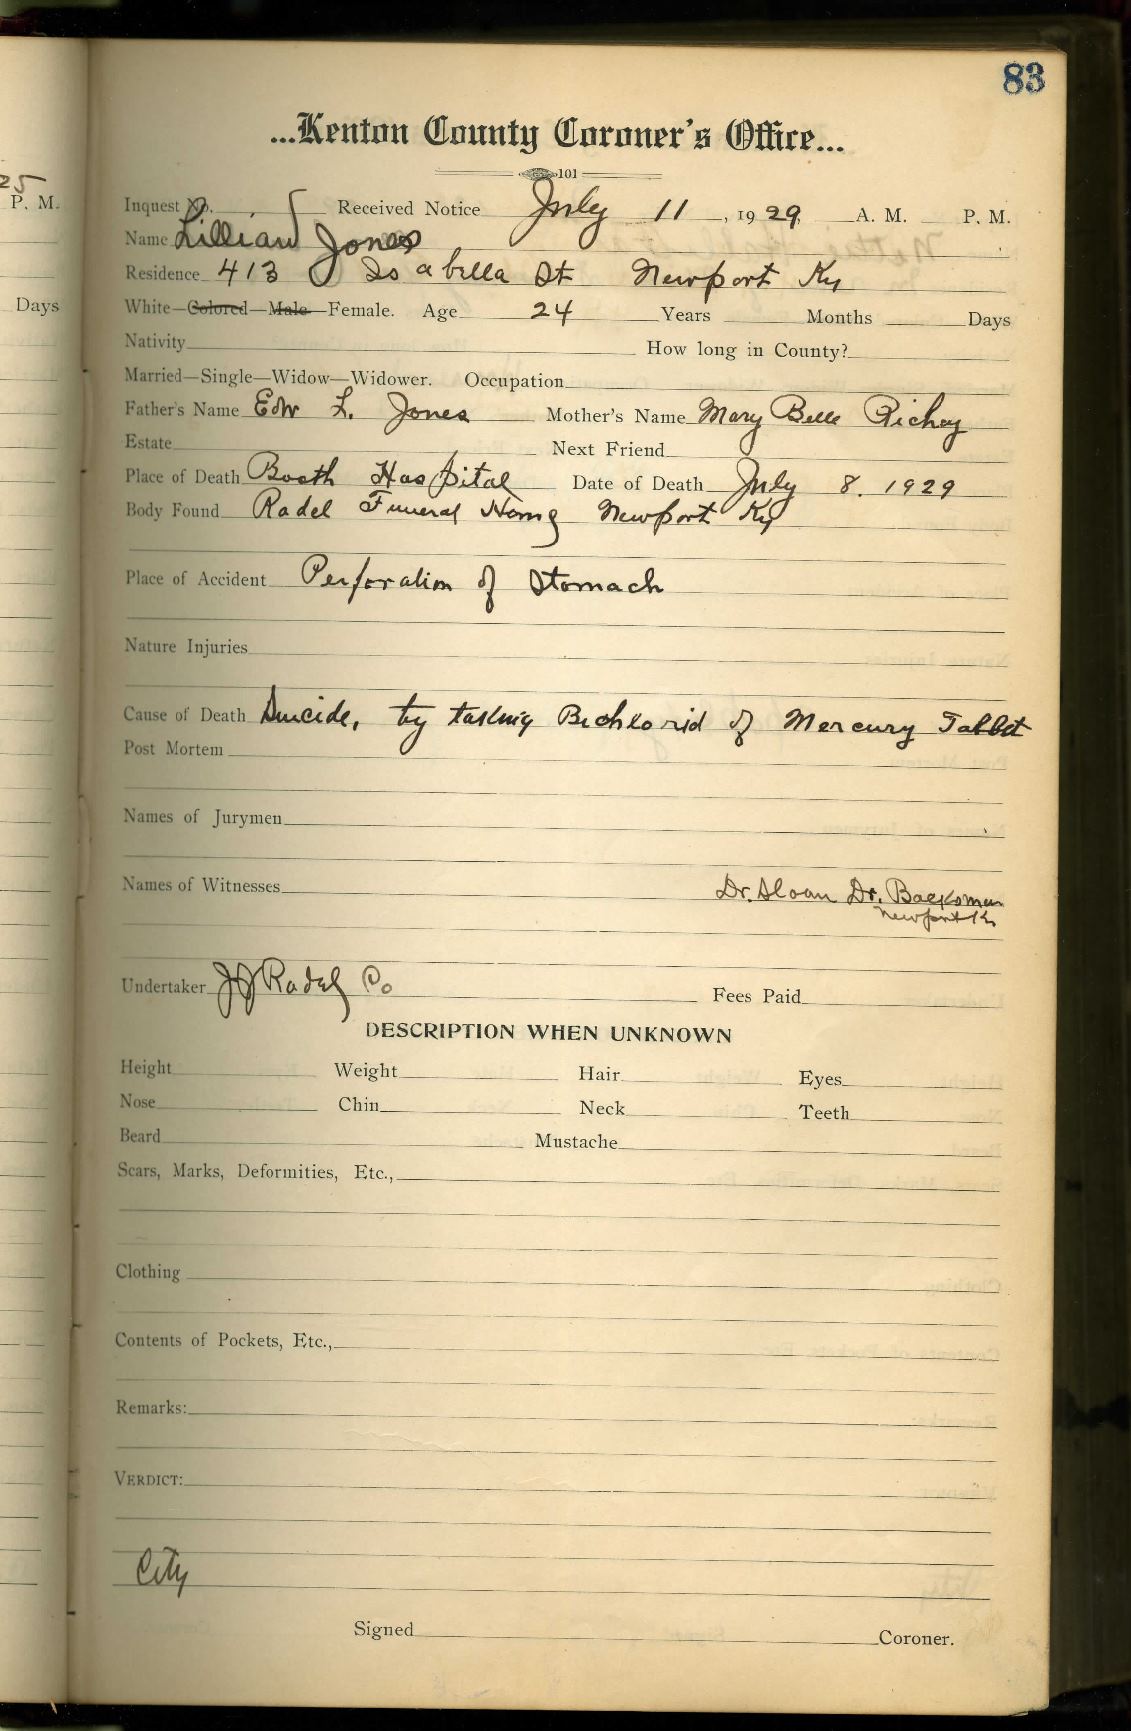 83
...Kenton County Coroner's Office...
101
25
P. M.
Inquest No. Received Notice July 11, 1929 A. M. P. M.
Name Lillian Jones
Residence 413 Isabella St Newport Ky
Days
White—Colored—Male—Female. Age 24 Years Months Days
Nativity How long in County?
Married—Single—Widow—Widower. Occupation
Father's Name Edw L. Jones Mother's Name Mary Belle Richey
Estate Next Friend
Place of Death Booth Hospital Date of Death July 8. 1929
Body Found Radel Funeral Home Newport Ky
Place of Accident Perforation of Stomach
Nature Injuries
Cause of Death Suicide, by taking Bichlorid of Mercury Tablet
Post Mortem
Names of Jurymen
Names of Witnesses Dr. Sloan Dr.
Newport Ky
Undertaker JJ Radel Co Fees Paid
DESCRIPTION WHEN UNKNOWN
Height Weight Hair Eyes
Nose Chin Neck Teeth
Beard Mustache
Scars, Marks, Deformities, Etc.,
Clothing
Contents of Pockets, Etc.,
Remarks:
VERDICT:
City
Signed Coroner.